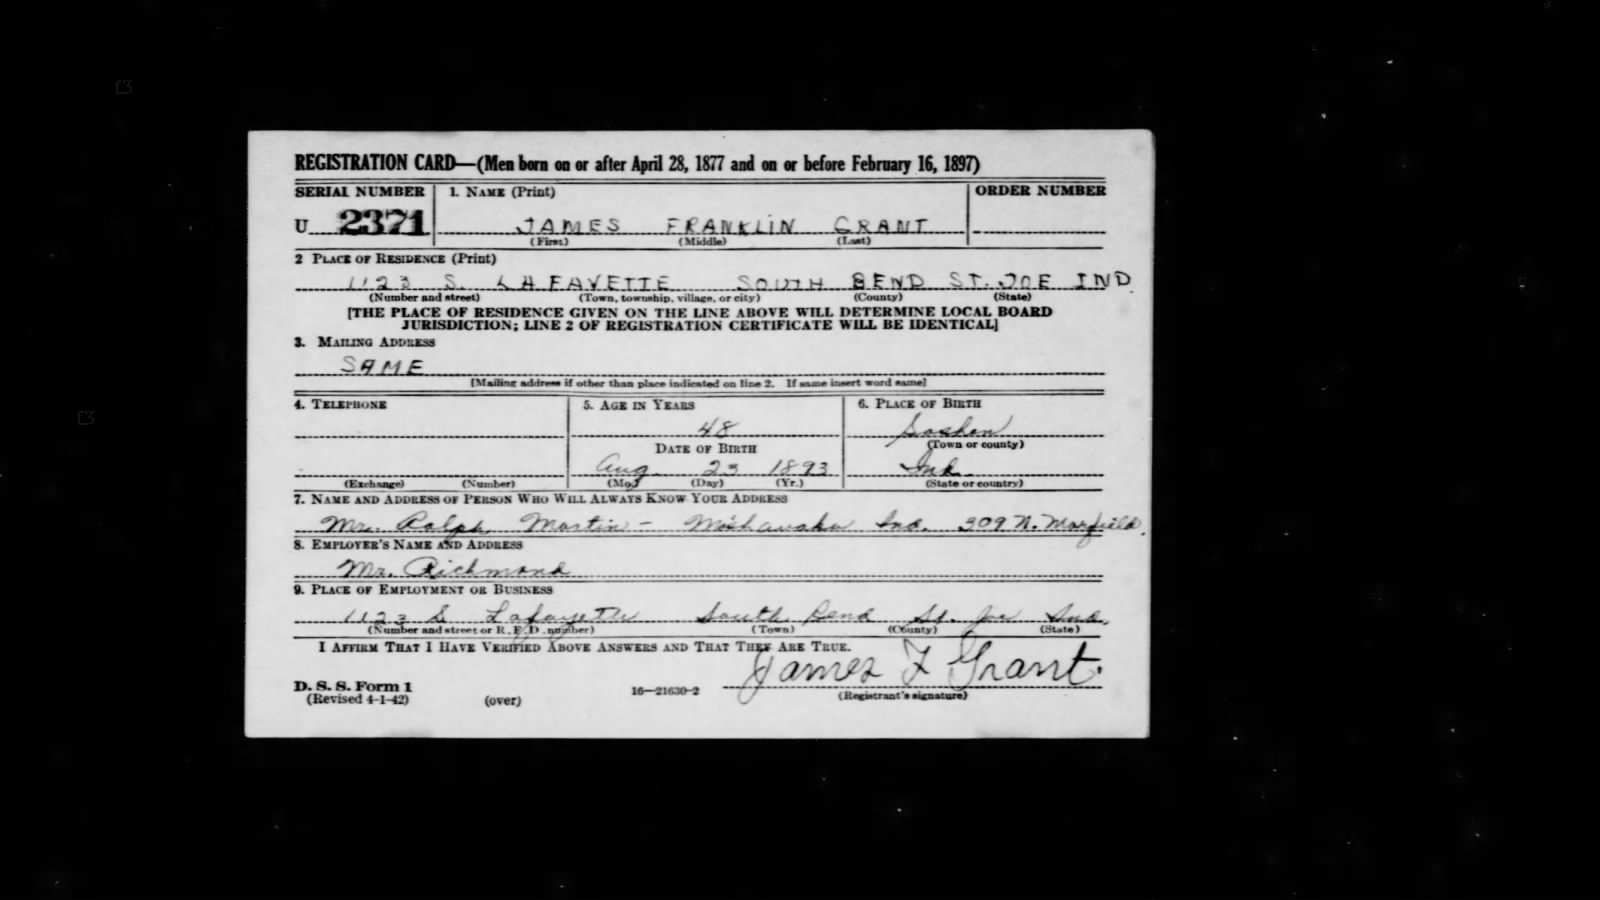 REGISTRATION CARD—(Men born on or after April 28, 1877 and on or before February 16, 1897)
SERIAL NUMBER 1. NAME (Print) ORDER NUMBER
U 2371 JAMES FRANKLIN GRANT
(First) (Middle) (Last)
2 PLACE OF RESIDENCE (Print)
1123 S. LAFAYETTE SOUTH BEND ST. JOE IND
(Number and street) (Town, township, village, or city) (County) (State)
[THE PLACE OF RESIDENCE GIVEN ON THE LINE ABOVE WILL DETERMINE LOCAL BOARD
JURISDICTION; LINE 2 OF REGISTRATION CERTIFICATE WILL BE IDENTICAL]
3. MAILING ADDRESS
SAME
[Mailing address if other than place indicated on line 2. If same insert word same]
4. TELEPHONE 5. AGE IN YEARS 6. PLACE OF BIRTH
48 Goshen
DATE OF BIRTH (Town or county)
Aug 23 1893 Ind.
(Exchange) (Number) (Mo.) (Day) (Yr.) (State or country)
7. NAME AND ADDRESS OF PERSON WHO WILL ALWAYS KNOW YOUR ADDRESS
Mr. Ralph Martin – Mishawaka Ind. 309 N.
8. EMPLOYER'S NAME AND ADDRESS
Mr. Richmond
9. PLACE OF EMPLOYMENT OR BUSINESS
1123 S Lafayette South Bend St. Joe Ind.
(Number and street or R. F. D. number) (Town) (County) (State)
I AFFIRM THAT I HAVE VERIFIED ABOVE ANSWERS AND THAT THEY ARE TRUE.
James F Grant.
D. S. S. Form 1
(Revised 4-1-42) (over) 16—21630-2 (Registrant's signature)